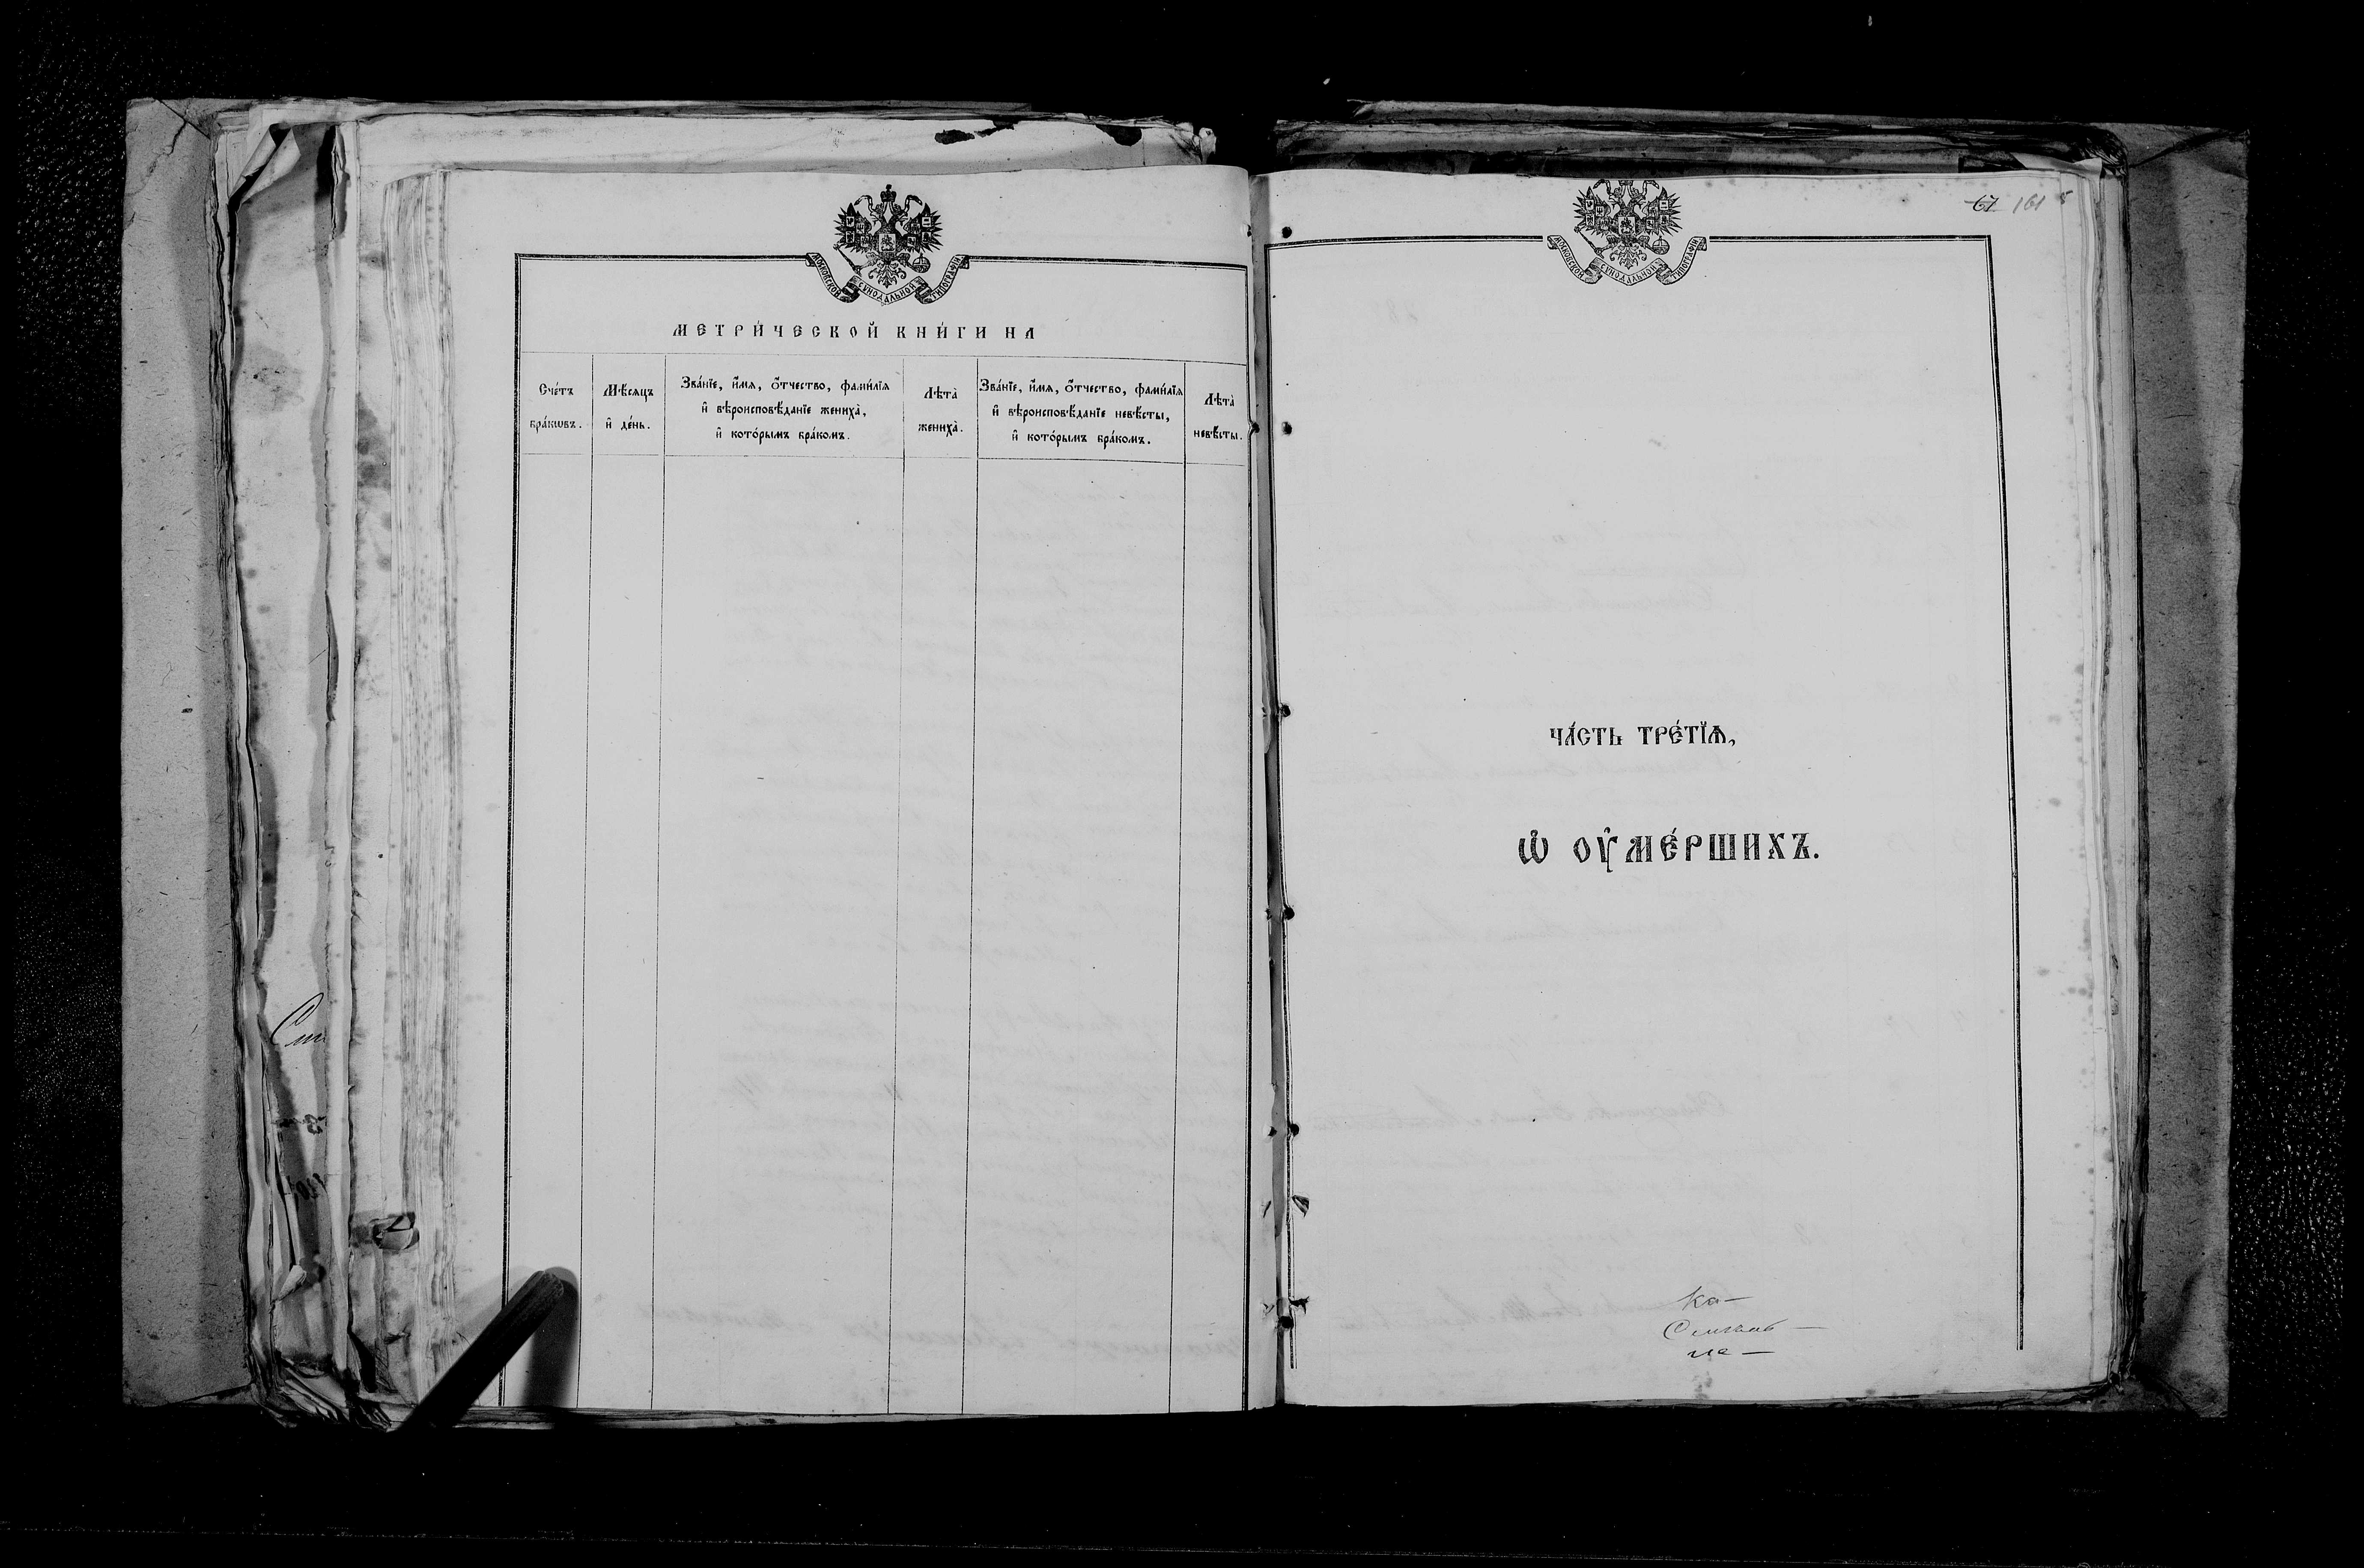 МОСКОВСКОЙ СѴНОДАЛЬНОЙ ТИПОГРАФІИ
МЕТРИ́ЧЕСКОЙ КНИ́ГИ НА
Сче́тъ
бра́кѡвъ.
Мѣ́сѧцъ
и҆ де́нь.
Зва́нїе, и҆́мѧ, ѻ҆́тчество, фами́лїѧ
и҆ вѣроисповѣ́данїе жениха̀,
и҆ кото́рымъ бра́комъ.
Лѣта̀
жениха̀.
Зва́нїе, и҆́мѧ, ѻ҆́тчество, фами́лїѧ
и҆ вѣроисповѣ́данїе невѣ́сты,
и҆ кото́рымъ бра́комъ.
Лѣта̀
невѣ́сты.
67 161
МОСКОВСКОЙ СѴНОДАЛЬНОЙ ТИПОГРАФІИ
ЧА́СТЬ ТРЕ́ТЇѦ,
Ѽ ОУ҆МЕ́РШИХЪ.
Ка-